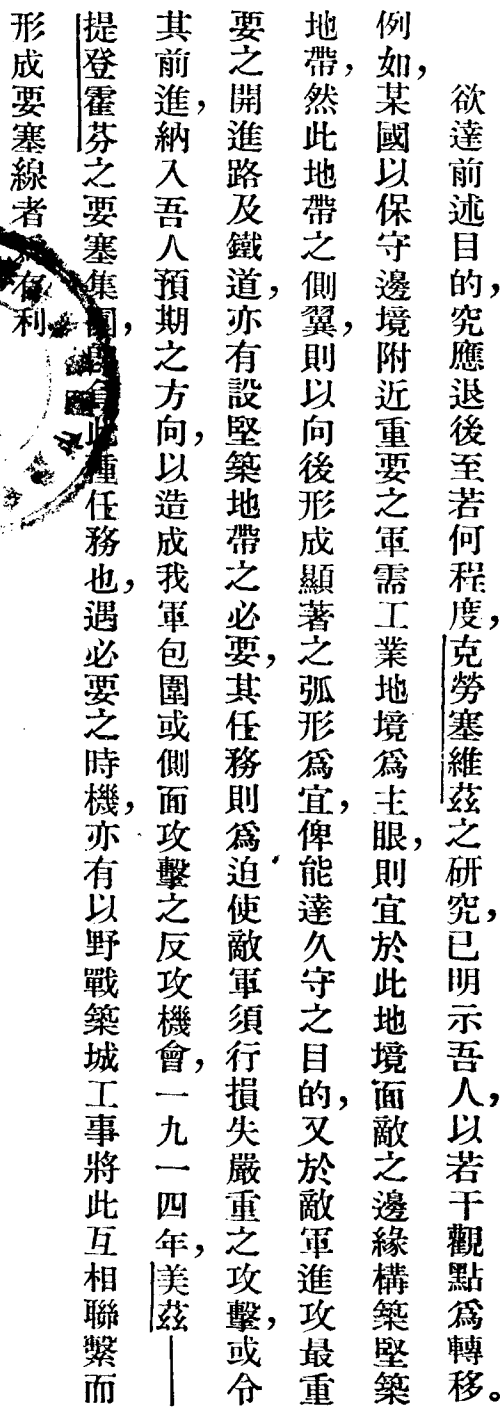 欲達前述目的，究應退後至若何程度，克勞塞維茲之研究，已明示吾人，以若干觀點爲轉移。
例如，某國以保守邊境附近重要之軍需工業地境爲主眼，則宜於此地境面敵之邊緣構築堅築
地帶，然此地帶之側翼，則以向後形成顯著之弧形爲宜，俾能達久守之目的，又於敵軍進攻最重
要之開進路及鐵道，亦有設堅築地帶之必要，其任務則爲迫使敵軍須行損失嚴重之攻擊，或令
其前進，納入吾人預期之方向，以造成我軍包圍或側面攻擊之反攻機會，一九一四年，美茲——
提登霍芬之要塞集團，此種任務也，遇必要之時機，亦有以野戰築城工事將此互相聯繫而
形成要塞線者有利